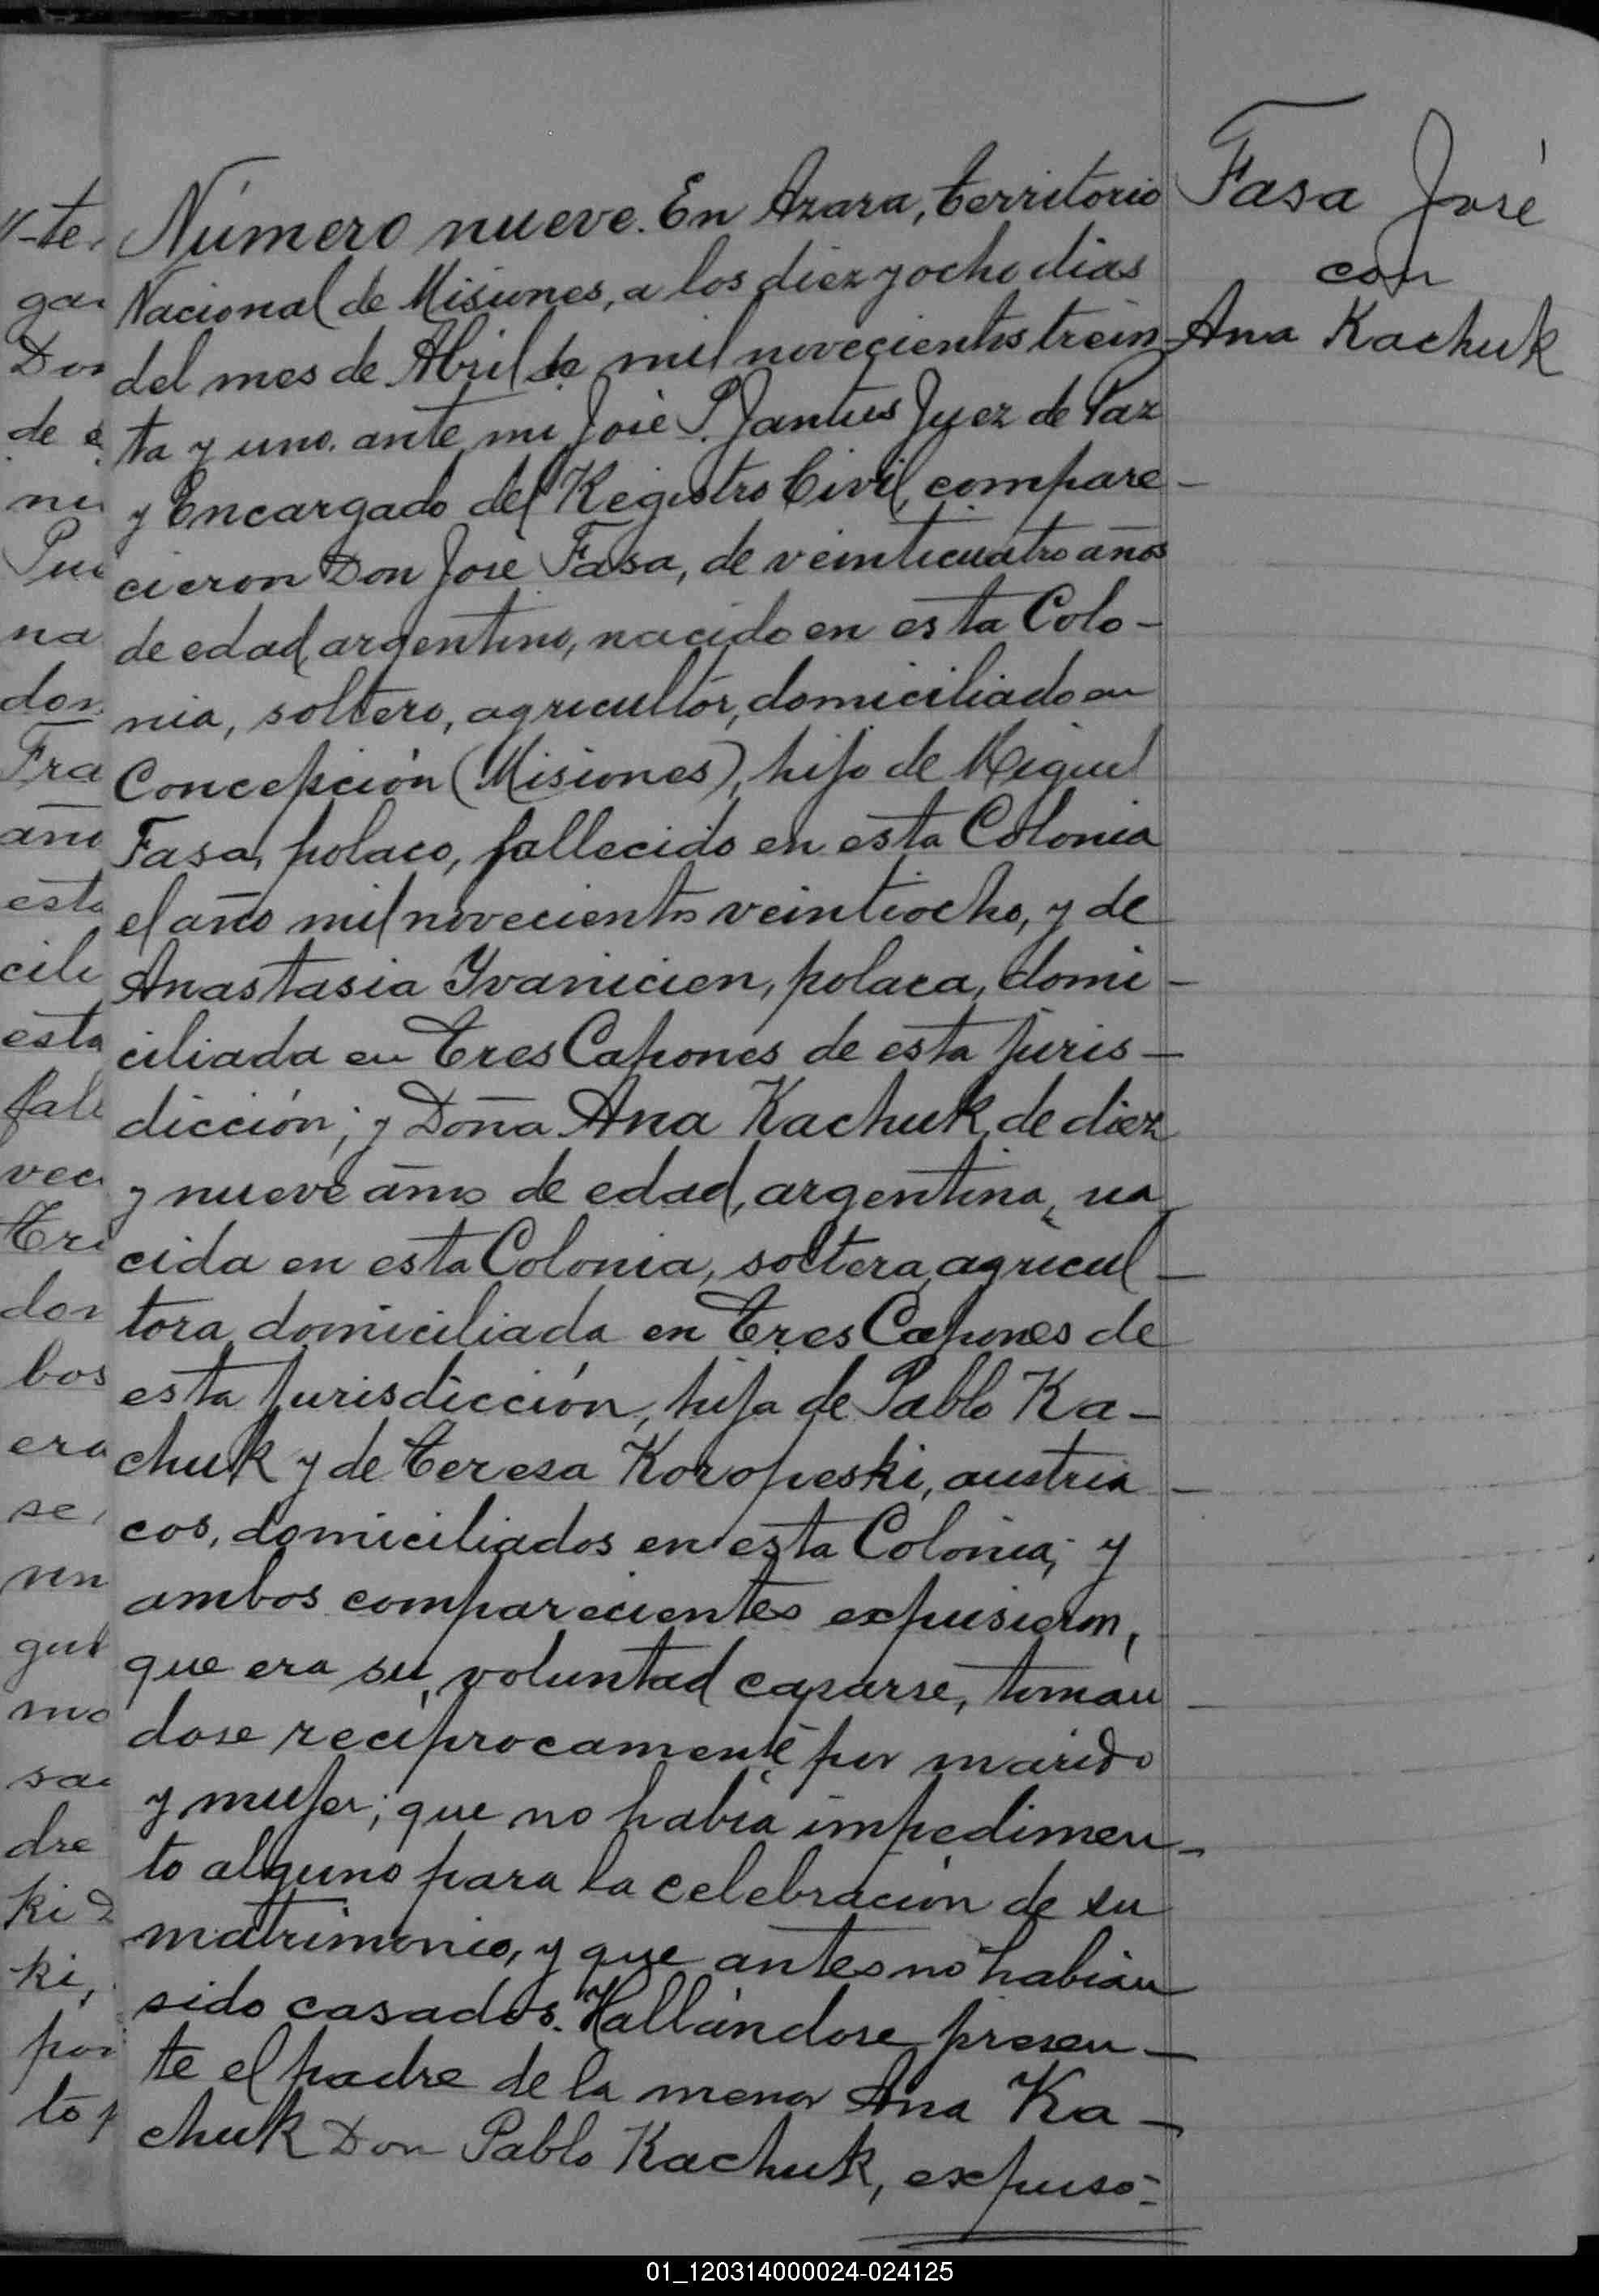 Número nueve. En Azara, territorio
Nacional de Misiones, a los diez y ocho dias
del mes de Abril de mil novecientos trein-
ta y uno. ante mi José P. Jantus Juez de Paz
y Encargado del Registro Civil, compare-
cieron Don José Fasa, de veinticuatro años
de edad, argentino, nacido en esta Colo-
nia, soltero, agricultor, domiciliado en
Concepción (Misiones), hijo de Miguel
Fasa, polaco, fallecido en esta Colonia
el año mil novecientos veintiocho, y de
Anastasia Yvanicien, polaca, domi-
ciliada en Tres Capones de esta juris-
dicción; y Doña Ana Kachuk, de diez
y nueve años de edad, argentina, na
cida en esta Colonia, soltera, agricul-
tora, domiciliada en Tres Capones de
esta jurisdicción, hija de Pablo Ka-
chuk y de Teresa Koropeski, austria-
cos, domiciliados en esta Colonia; y
ambos comparecientes expusieron,
que era su voluntad casarse, toman-
dose reciprocamente por marido
y mujer; que no habia impedimen-
to alguno para la celebración de su
matrimonio, y que antes no habian
sido casados. Hallándose presen-
te el padre de la menor Ana Ka-
chuk Don Pablo Kachuk, expuso:
Fasa José
con
Ana Kachuk
01_120314000024-024125